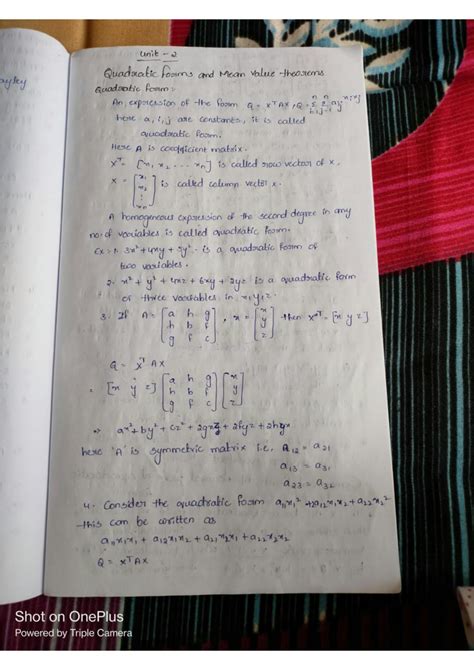 ayley
Unit - 2
Quadratic forms and Mean Value theorems
Quadratic form:
An expression of the form Q = xᵀAX, Q = Σⁿᵢ₌₁ Σⁿⱼ₌₁ aij xi xj
here a, i, j are constants, it is called
quadratic form.
Here A is coefficient matrix.
Xᵀ = [x₁ x₂ ... xₙ] is called row vector of x.
x = [x₁ x₂ ⋮ xₙ] is called column vector x.
A homogeneous expression of the second degree in any
no. of variables is called quadratic form.
Ex:- 1. 3x² + 4xy + 5y² is a quadratic form of
two variables.
2. x² + y² + 4xz + 6xy + 2yz is a quadratic form
of three variables in x, y, z.
3. If A = [a h g; h b f; g f c], x = [x; y; z] then xᵀ = [x y z]
Q = XᵀAX
= [x y z] [a h g; h b f; g f c] [x; y; z]
⇒ ax² + by² + cz² + 2gxz + 2fyz + 2hyx
here 'A' is symmetric matrix i.e., a₁₂ = a₂₁
a₁₃ = a₃₁
a₂₃ = a₃₂
4. Consider the quadratic form a₁₁x₁² + 2a₁₂x₁x₂ + a₂₂x₂²
this can be written as
a₁₁x₁x₁ + a₁₂x₁x₂ + a₂₁x₂x₁ + a₂₂x₂x₂
Q = XᵀAX
Shot on OnePlus
Powered by Triple Camera